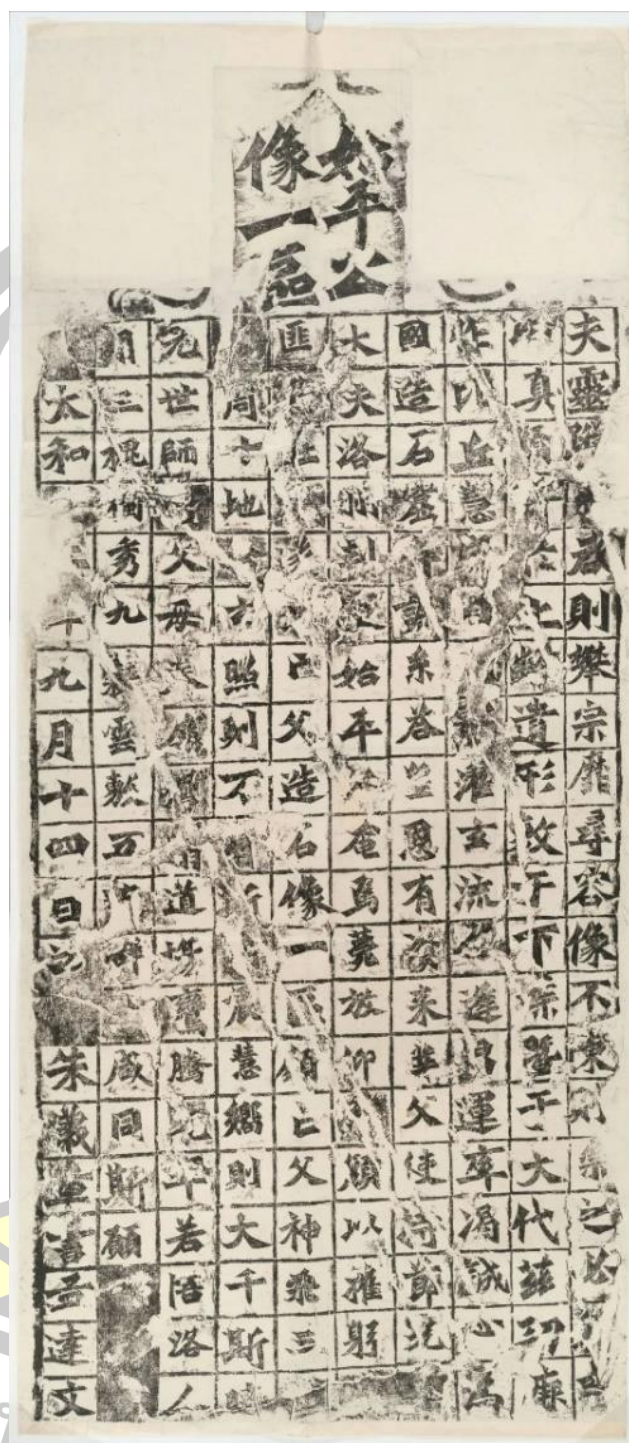 始平公
像一區
夫靈啓則攀宗靡尋容像不陳則崇之必
真於上齡遺形敷于下葉暨于大代茲功厥
作比丘慧成自濯玄流邀逢昌運率竭誠心為
國造石窟系答皇恩有資來業父使持節光
大夫洛州刺史始平公奄焉薨放仰顏以摧躬
匪在遂亡父造石像一區願亡父神飛三
周十地玄照則万明斯震慧嚮則大千斯
元世師僧父母眷道場鸞騰兜率若悟洛人
間三槐獨秀九蕀雲敷五有群咸同斯願
太和九月十四日訖朱義章書孟達文